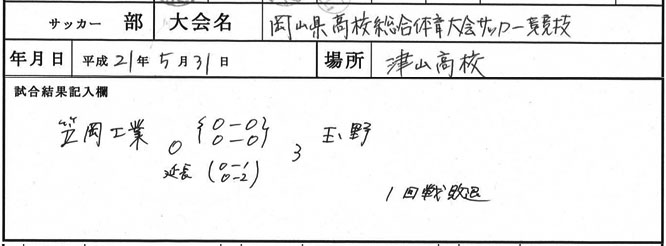 サッカー 部 大会名 岡山県高校総合体育大会サッカー競技
年月日 平成21年5月31日 場所 津山高校
試合結果記入欄
笠岡工業 0 {0-0 0-0} 3 玉野
延長 (0-1 0-2)
1回戦敗退